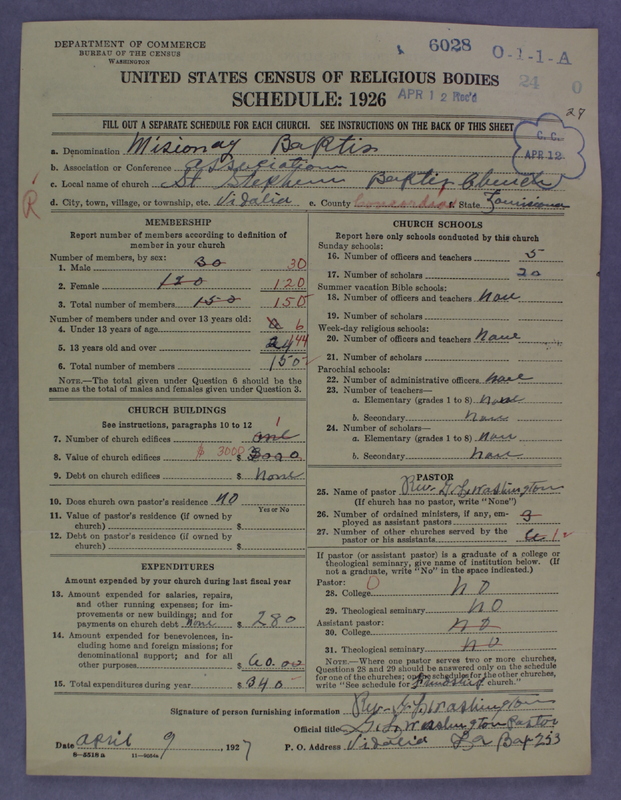 DEPARTMENT OF COMMERCE
BUREAU OF THE CENSUS
WASHINGTON
6028 O-1-1-A
24 0
UNITED STATES CENSUS OF RELIGIOUS BODIES
SCHEDULE: 1926
APR 12 Rec'd
27
FILL OUT A SEPARATE SCHEDULE FOR EACH CHURCH. SEE INSTRUCTIONS ON THE BACK OF THIS SHEET
C. C.
APR 12
a. Denomination Misionay Baptis
b. Association or Conference association
c. Local name of church St Stephens Baptis Church
R
d. City, town, village, or township, etc. Vidalia e. County Concordia f. State Louisiana
MEMBERSHIP
Report number of members according to definition of member in your church
Number of members, by sex:
1. Male 30 30
2. Female 120 120
3. Total number of members 150 150
Number of members under and over 13 years old:
4. Under 13 years of age 6
5. 13 years old and over 144
6. Total number of members 150
NOTE.—The total given under Question 6 should be the same as the total of males and females given under Question 3.
CHURCH BUILDINGS
See instructions, paragraphs 10 to 12
7. Number of church edifices one 1
8. Value of church edifices $ 3000 $ 3000
9. Debt on church edifices $ None
10. Does church own pastor's residence NO
Yes or No
11. Value of pastor's residence (if owned by church) $
12. Debt on pastor's residence (if owned by church) $
EXPENDITURES
Amount expended by your church during last fiscal year
13. Amount expended for salaries, repairs, and other running expenses; for improvements or new buildings; and for payments on church debt None $ 280
14. Amount expended for benevolences, including home and foreign missions; for denominational support; and for all other purposes $ 60.00
15. Total expenditures during year $ 340
CHURCH SCHOOLS
Report here only schools conducted by this church
Sunday schools:
16. Number of officers and teachers 5
17. Number of scholars 20
Summer vacation Bible schools:
18. Number of officers and teachers None
19. Number of scholars
Week-day religious schools:
20. Number of officers and teachers None
21. Number of scholars
Parochial schools:
22. Number of administrative officers None
23. Number of teachers—
a. Elementary (grades 1 to 8) None
b. Secondary None
24. Number of scholars—
a. Elementary (grades 1 to 8) None
b. Secondary None
PASTOR
25. Name of pastor Rev. G. L. Washington
(If church has no pastor, write "None")
26. Number of ordained ministers, if any, employed as assistant pastors 3
27. Number of other churches served by the pastor or his assistants 1
If pastor (or assistant pastor) is a graduate of a college or theological seminary, give name of institution below. (If not a graduate, write "No" in the space indicated.)
Pastor: 0
28. College NO
29. Theological seminary NO
Assistant pastor:
30. College NO
31. Theological seminary NO
NOTE.—Where one pastor serves two or more churches, Questions 28 and 29 should be answered only on the schedule for one of the churches; on the schedules for the other churches, write "See schedule for Friendship church."
Signature of person furnishing information Rev. G. L. Washington
Official title G. L. Washington Pastor
Date april 9, 1927 P. O. Address Vidalia La Box 253
8—5518 a